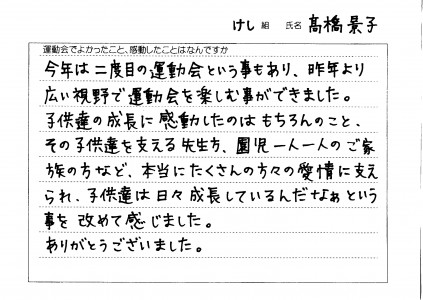 けし 組 氏名 髙橋景子
運動会でよかったこと、感動したことはなんですか
今年は二度目の運動会という事もあり、昨年より
広い視野で運動会を楽しむ事ができました。
子供達の成長に感動したのはもちろんのこと、
その子供達を支える先生方、園児一人一人のご家
族の方など、本当にたくさんの方々の愛情に支え
られ、子供達は日々成長しているんだなぁという
事を改めて感じました。
ありがとうございました。